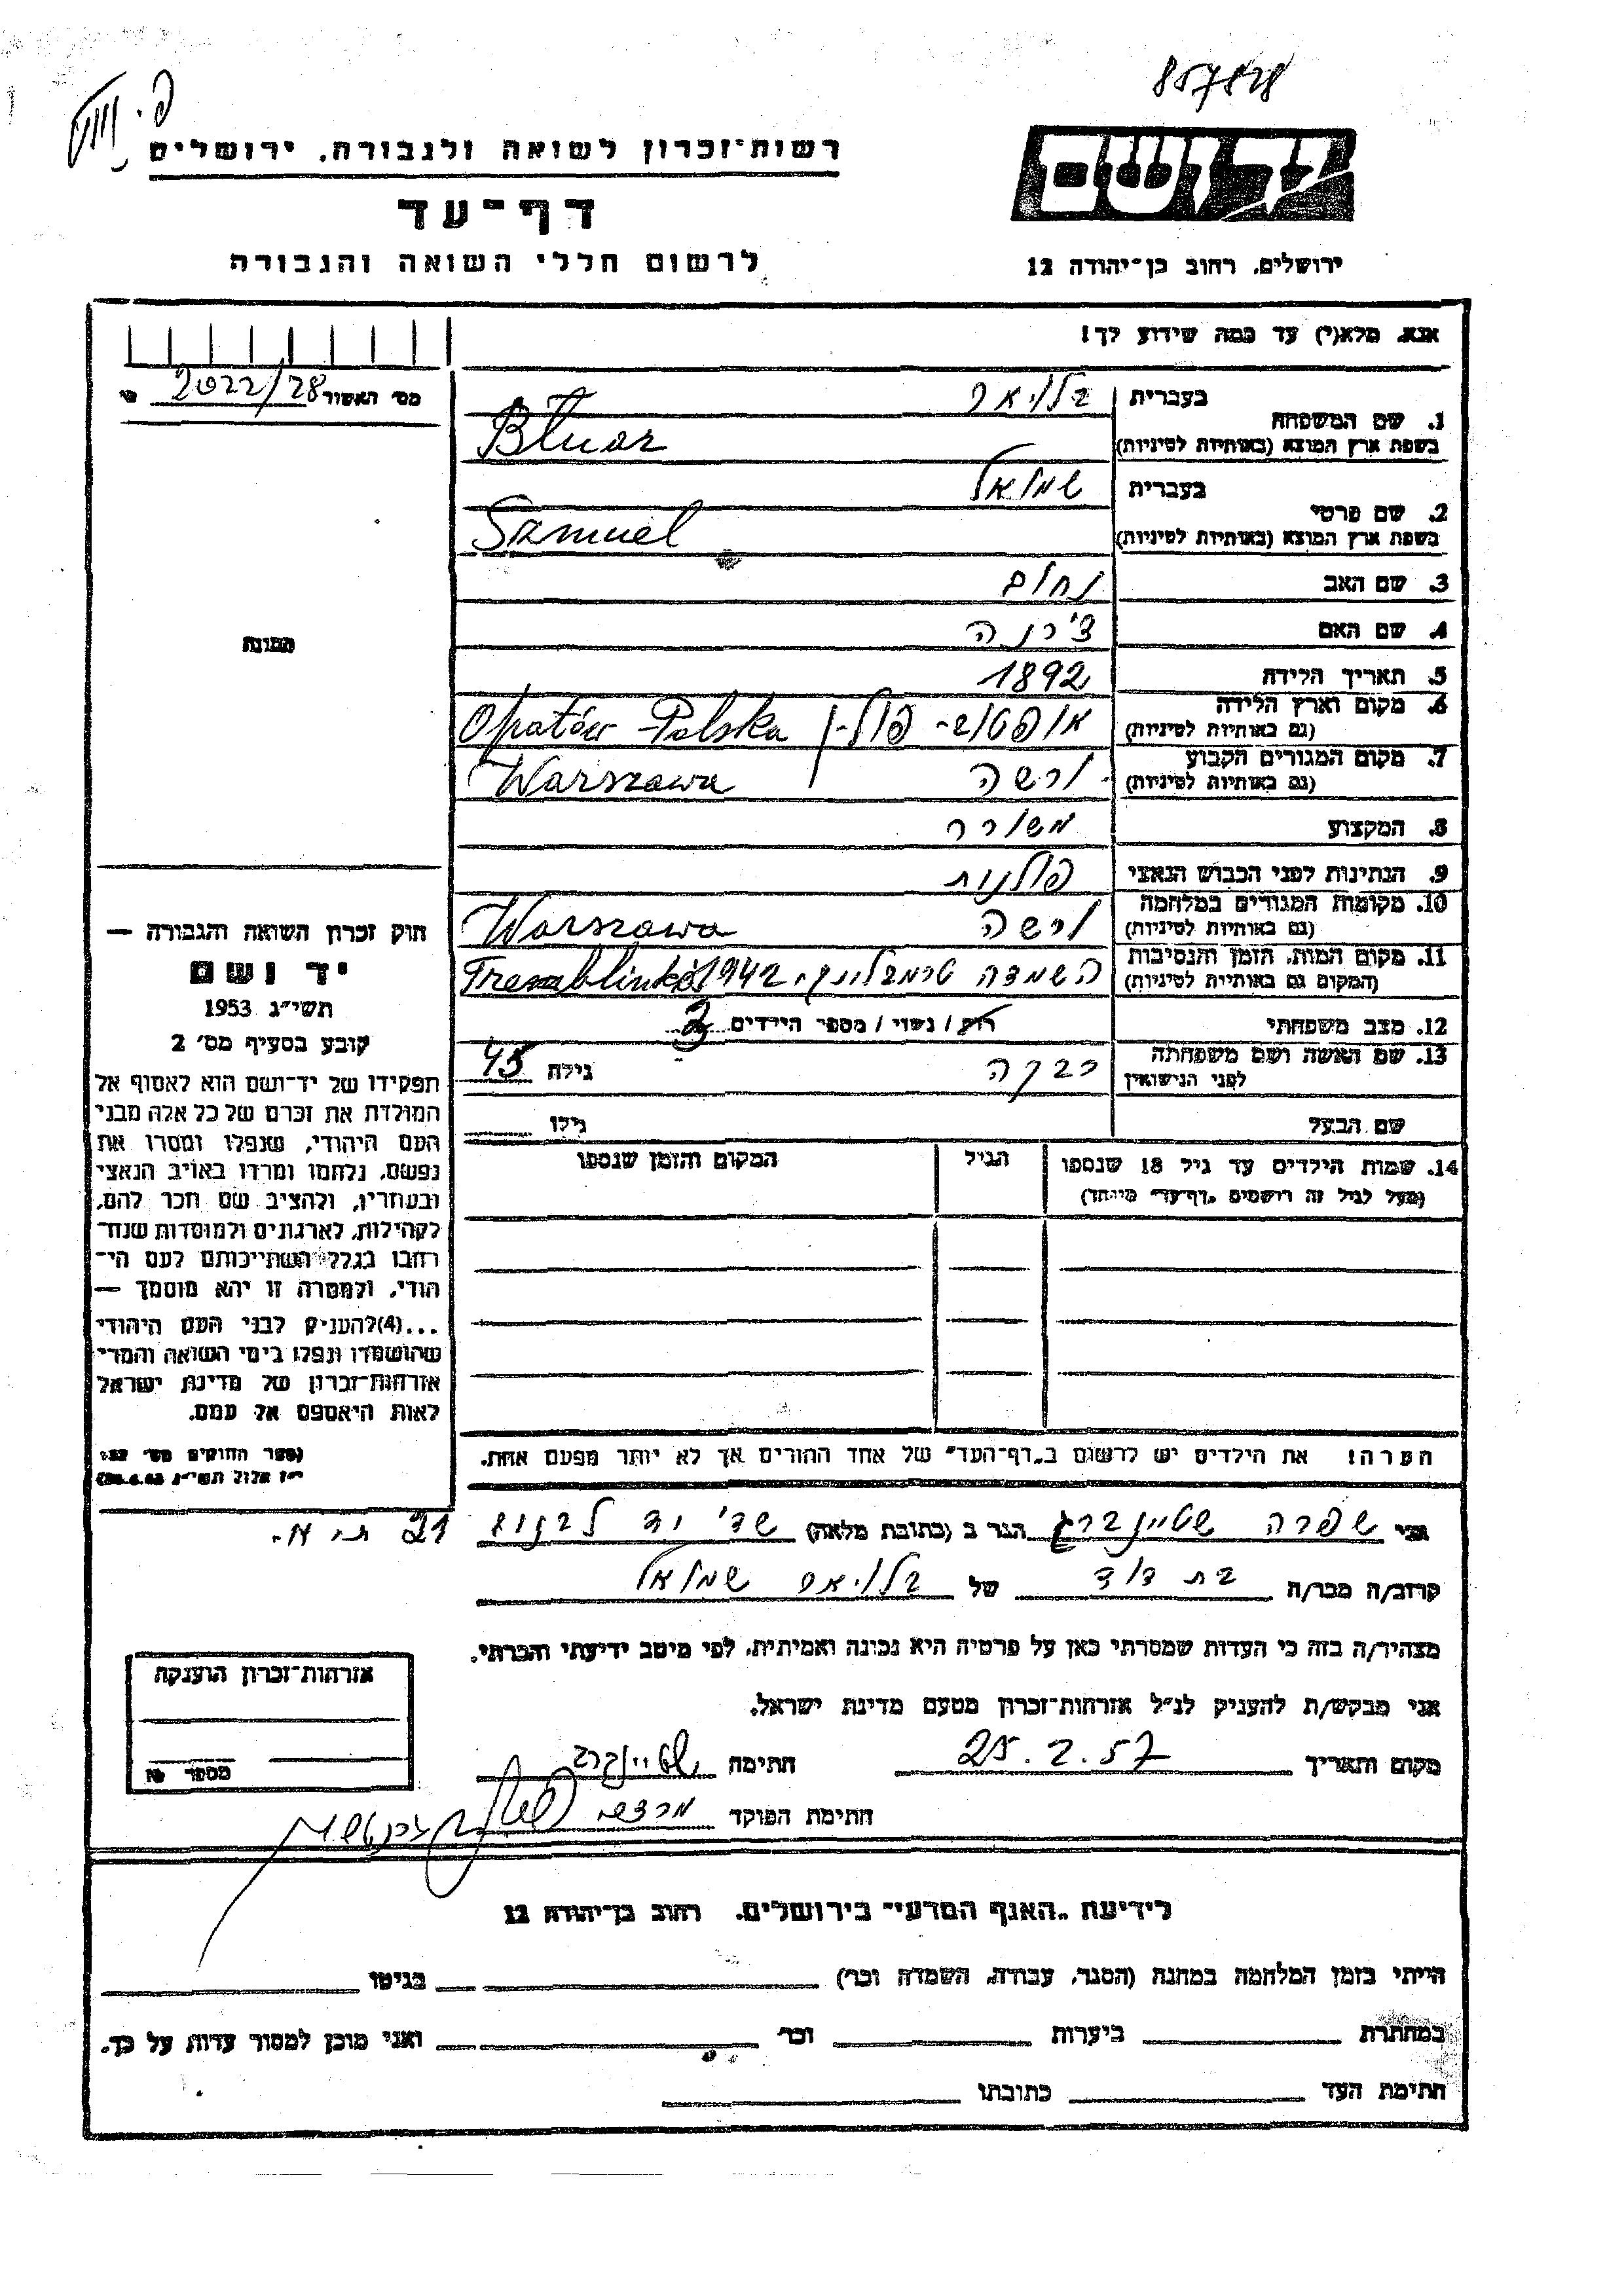 857828
רשות־זכרון לשואה ולגבורה, ירושלים
דף־עד
לרשום חללי השואה והגבורה
יד ושם
ירושלים, רחוב בן־יהודה 12
אנא, מלא(י) עד כמה שידוע לך!
מס׳ האשור 2022/28
1. שם המשפחה
בעברית בלואר
בשפת ארץ המוצא (באותיות לטיניות) Bluar
2. שם פרטי
בעברית שמואל
בשפת ארץ המוצא (באותיות לטיניות) Samuel
3. שם האב נחום
4. שם האם צ׳רנה
5. תאריך הלידה 1892
6. מקום וארץ הלידה
(גם באותיות לטיניות) אופטוב- פולין Opatów Polska
7. מקום המגורים הקבוע
(גם באותיות לטיניות) ורשה Warszawa
8. המקצוע
9. הנתינות לפני הכבוש הנאצי פולנית
10. מקומות המגורים במלחמה
(גם באותיות לטיניות) ורשה Warszawa
11. מקום המות, הזמן והנסיבות
(המקום גם באותיות לטיניות) השמדה 1942
12. מצב משפחתי רווק / נשוי / מספר הילדים 2
13. שם האשה ושם משפחתה
לפני הנישואין רבקה גילה 45
שם הבעל גילו
14. שמות הילדים עד גיל 18 שנספו
(מעל לגיל זה רושמים „דף־עד״ מיוחד)
הגיל
המקום והזמן שנספו
הערה: את הילדים יש לרשום ב„דף־העד״ של אחד ההורים אך לא יותר מפעם אחת.
תמונה
חוק זכרון השואה והגבורה —
יד ושם
תשי״ג 1953
קובע בסעיף מס׳ 2
תפקידו של יד־ושם הוא לאסוף אל
המולדת את זכרם של כל אלה מבני
העם היהודי, שנפלו ומסרו את
נפשם, נלחמו ומרדו באויב הנאצי
ובעוזריו, ולהציב שם וזכר להם,
לקהילות, לארגונים ולמוסדות שנח־
רבו בגלל השתייכותם לעם הי־
הודי, ולמטרה זו יהא מוסמך —
...(4) להעניק לבני העם היהודי
שהושמדו ונפלו בימי השואה והמרי
אזרחות־זכרון של מדינת ישראל
לאות היאספם אל עמם.
(ספר החוקים מס׳ 132
י״ז אלול תשי״ג
אני שפרה שטיינברג הגר ב (כתובת מלאה) שד׳ יד לבנים 21 ת״א.
קרוב/ה מכר/ה בת דוד של בלואר שמואל
מצהיר/ה בזה כי העדות שמסרתי כאן על פרטיה היא נכונה ואמיתית, לפי מיטב ידיעתי והכרתי.
אני מבקש/ת להעניק לנ״ל אזרחות־זכרון מטעם מדינת ישראל.
מקום ותאריך 25.2.57 חתימה שטיינברג
חתימת הפוקד
אזרחות־זכרון הוענקה
מספר
לידיעת „האגף המדעי״ בירושלים, רחוב בן־יהודה 12
הייתי בזמן המלחמה במחנה (הסגר, עבודה, השמדה וכר׳) בגיטו
במחתרת ביערות וכר׳ ואני מוכן למסור עדות על כך.
חתימת העד כתובתו